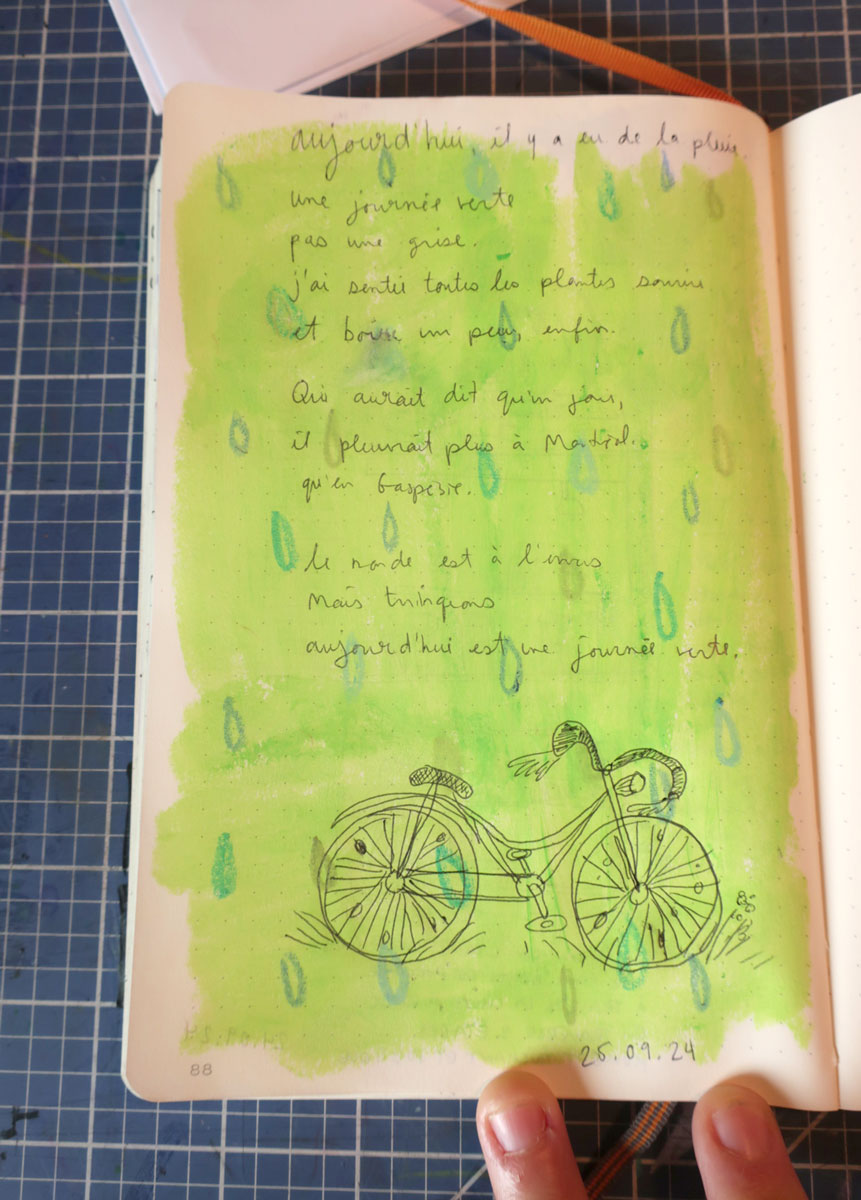 aujourd'hui, il y a eu de la pluie.
une journée verte
pas une grise.
j'ai sentie toutes les plantes sourire
et boire un peu, enfin.
Qui aurait dit qu'un jour,
il pleuvrait plus à Montréal
qu'en Gaspésie.
le monde est à l'envers
Mais trinquons
aujourd'hui est une journée verte.
88
25.09.24